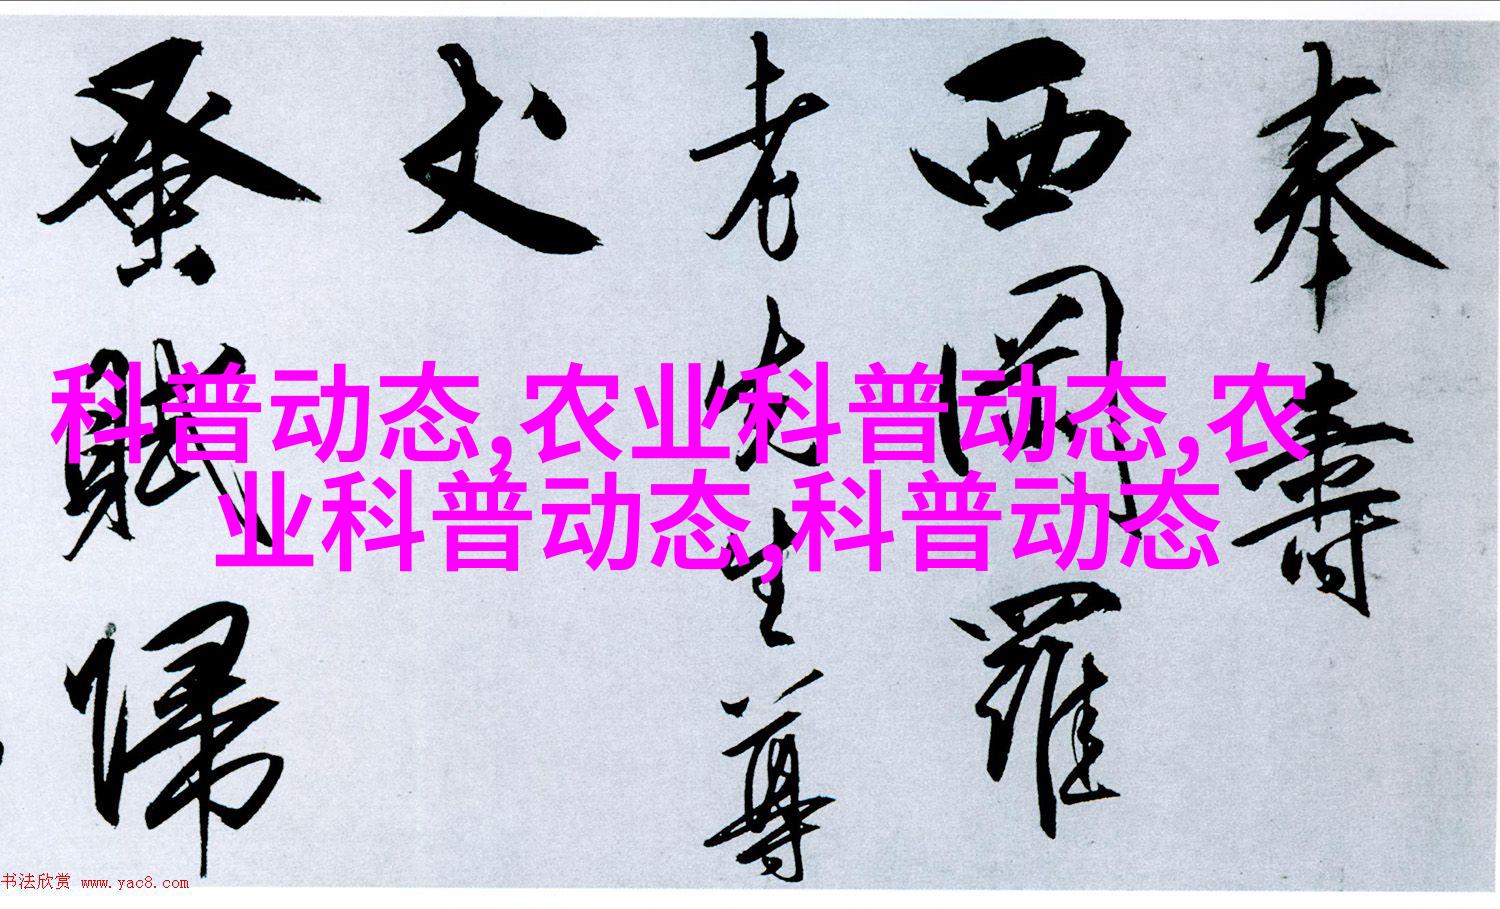 奉壽
西園羅
老先生尊
丈
蚤賦歸
科普动态,农业科普动态,农
业科普动态,科普动态
书法欣赏 www.yac8.com